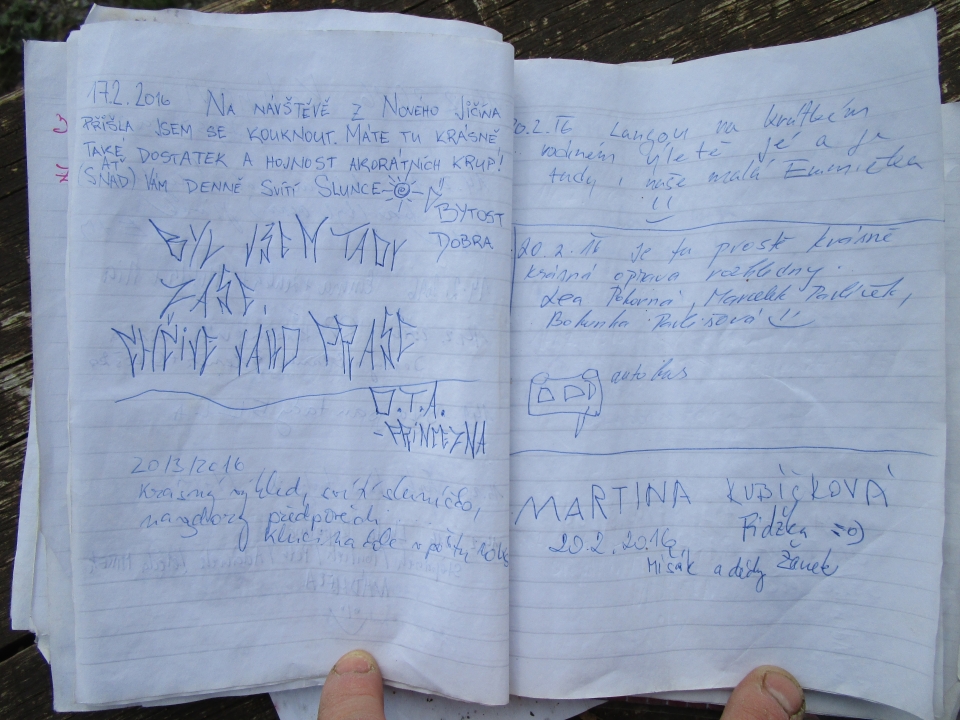 17.2.2016 NA NÁVŠTĚVĚ Z NOVÉHO JIČÍNA
PŘIŠLA JSEM SE KOUKNOUT. MÁTE TU KRÁSNĚ
TAKÉ DOSTATEK A HOJNOST AKORÁTNÍCH KRUP!
(SNAD) AŤ VÁM DENNĚ SVÍTÍ SLUNCE
BYTOST
DOBRA
BYL JSEM TADY
ZAŠE,
CHČIJE JAKO PRAŠE
O.T.A.
-PRINCEZNA
20/3/2016
Krásný výhled, svítí sluníčko,
navzdory předpovědi...
Kluci na
20.2.16 Langou na krátkém
rodinném výletě je a je
tady i naše malá Emmička
20.2.16 je tu prostě krásně
krásná oprava rozhledny.
Lea Pokorná, Mareček Pavlíček,
Bohunka Pavlišová
autobus
MARTINA KUBÍČKOVÁ
20.2.2016, Fidzka =o)
Mišák a dědy Žanek